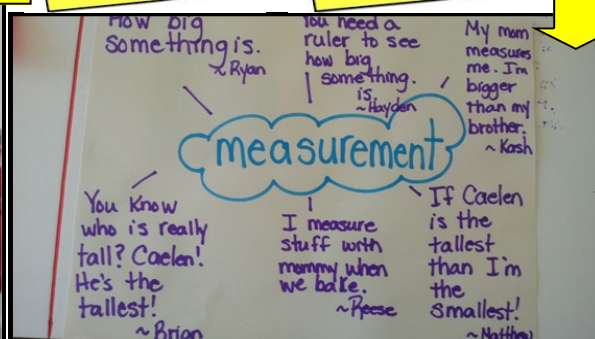 How big
something is.
~Ryan
You need a
ruler to see
how big
something.
is.
~Hayden
My mom
measures
me. I'm
bigger
than my
brother.
~Kash
measurement
You know
who is really
tall? Caelen!
He's the
tallest!
~Brian
I measure
stuff with
mommy when
we bake.
~Reese
If Caelen
is the
tallest
than I'm
the
smallest!
~Matthew